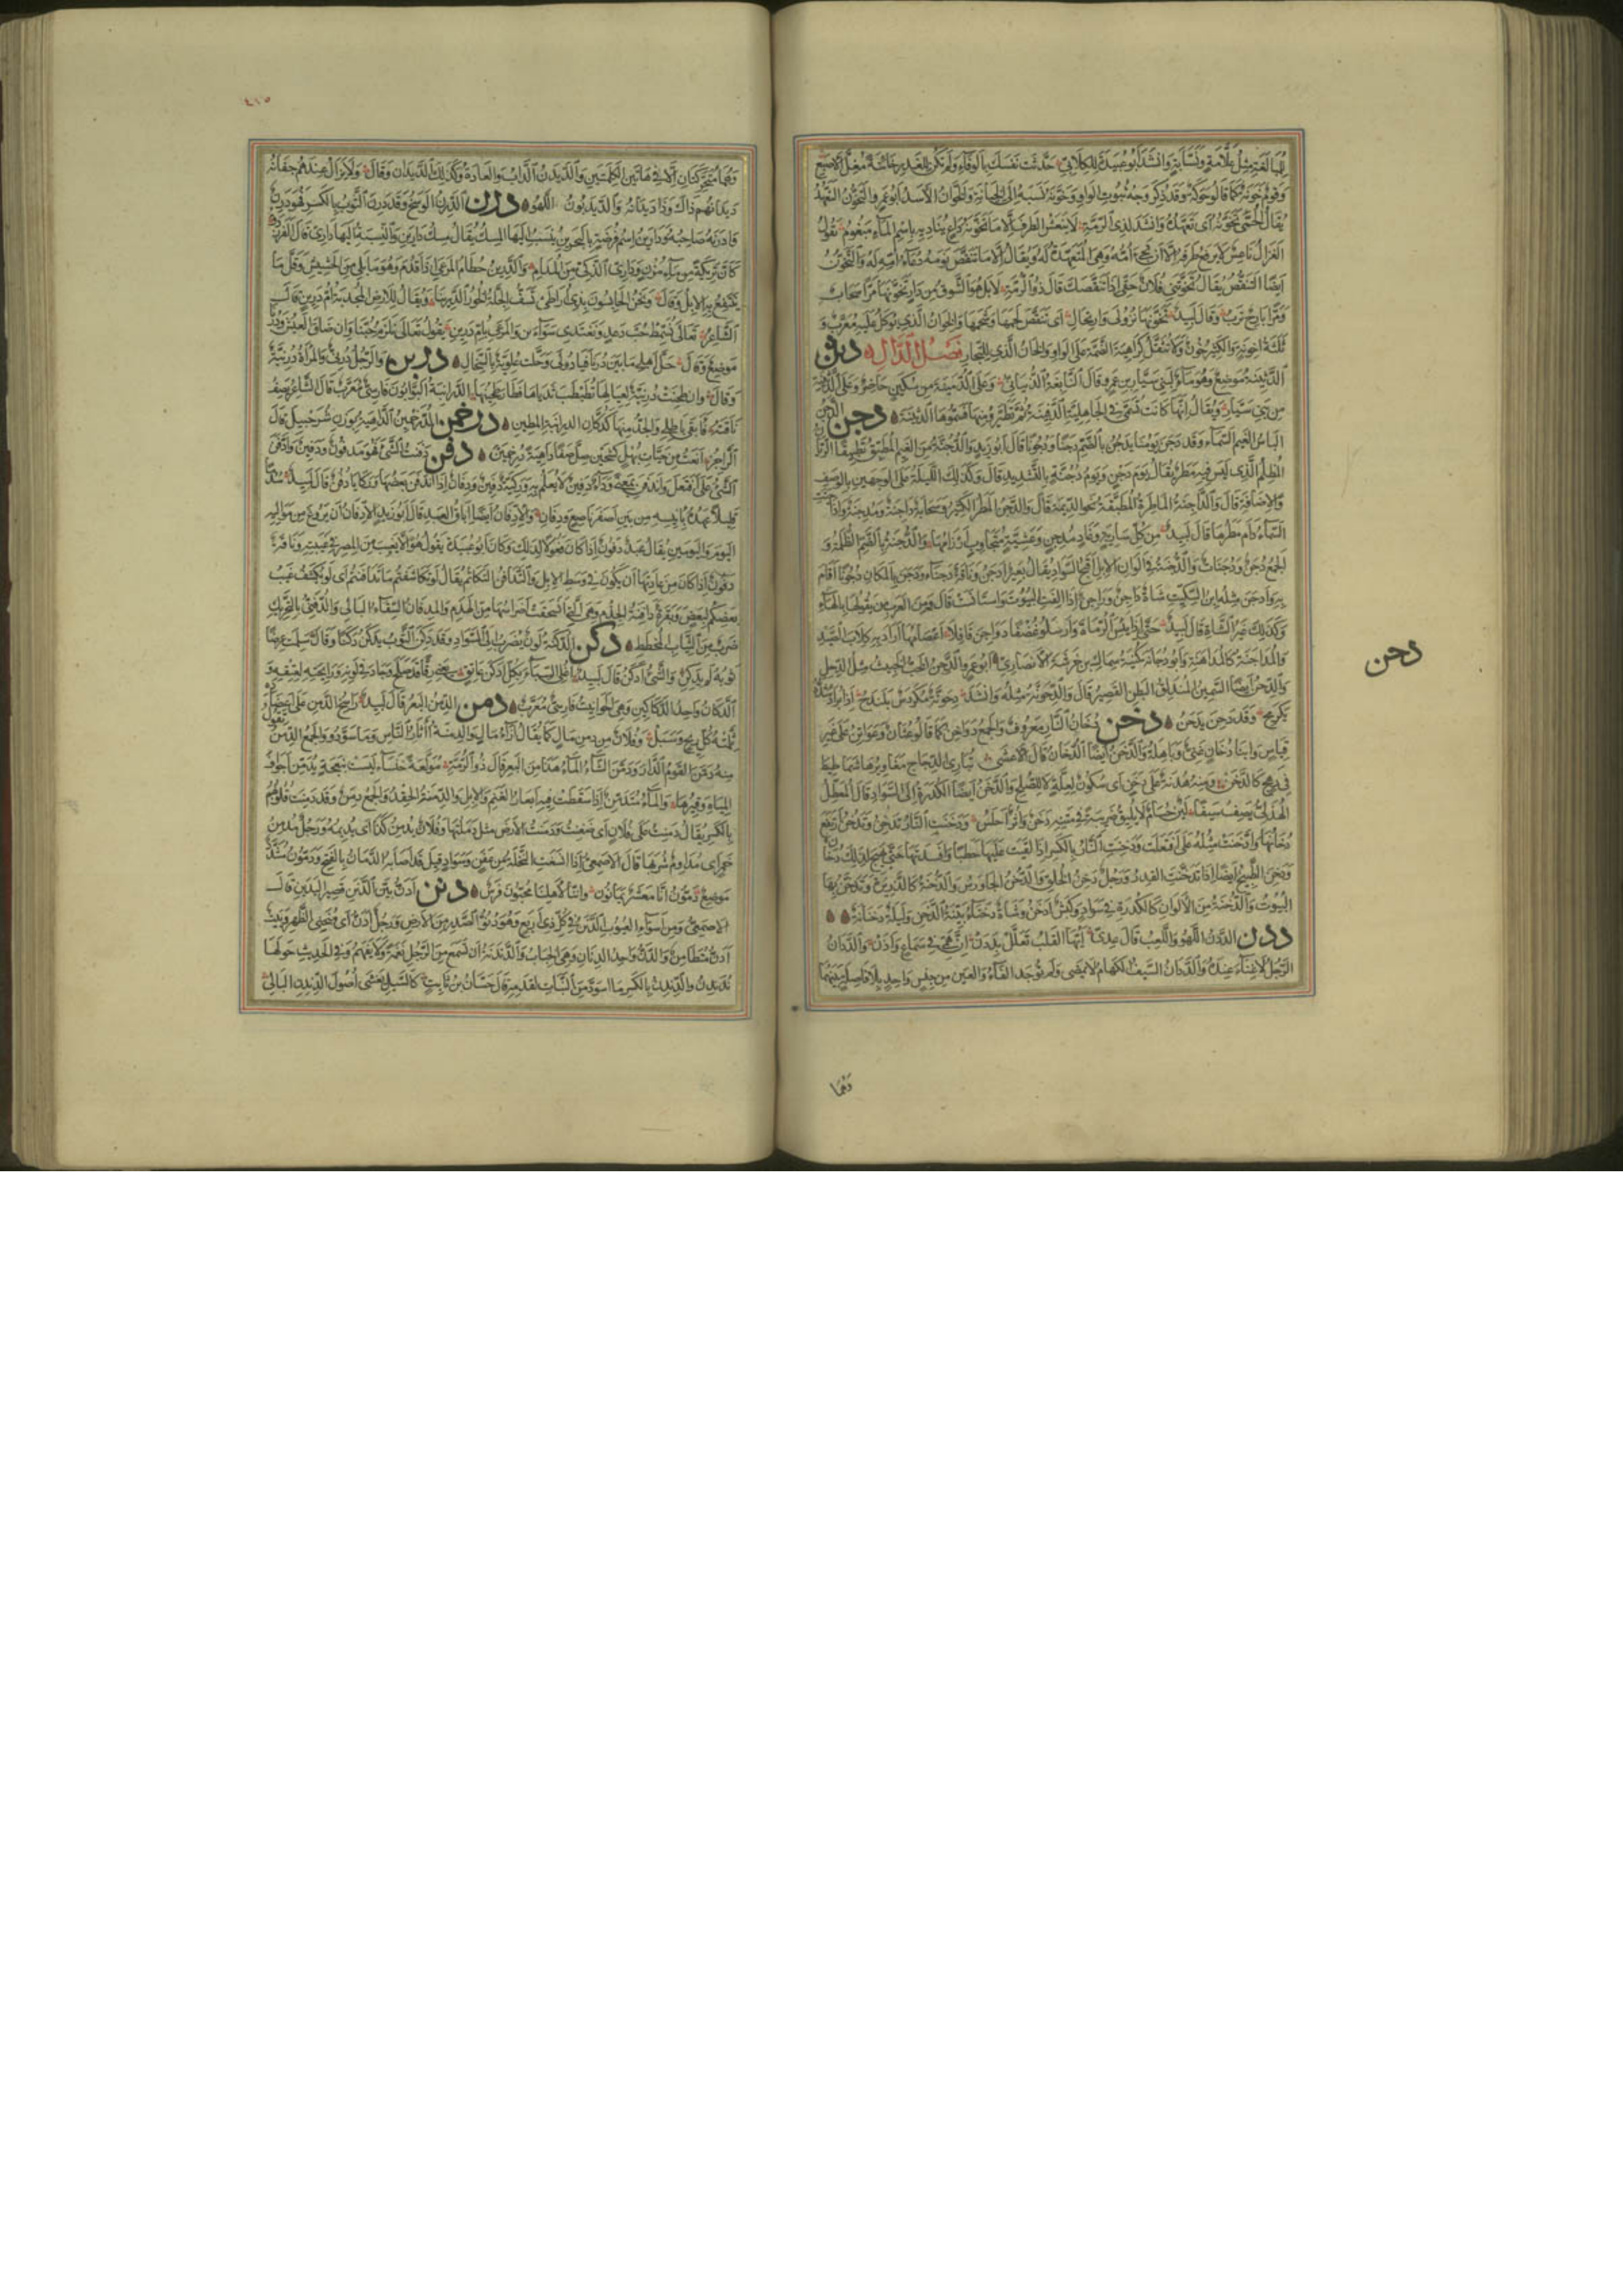 للمبالغة مثل علامة ونسابة وانشد ابو عبيد للكلابي حدثت نفسك بالوفاء ولم تكن للغدر خائنة مغل الاصبع
وقوم خونة كما قالوا حوكة وقد ذكر وجه ثبوت الواو وخونه نسبه الى الخيانة والخوان الاسد ابو عمرو التخون التعهد
يقال الحمى تخونه اى تعهده وانشد لذى الرمة لا ينعش الطرف الا ما تخونه داع يناديه باسم الماء مبغوم يقول
الغزال ناعس لا يرفع طرفه الا ان تجئ امه وهى المتعهدة له ويقال الا ما تنقص نومه دعاء امه له والتخون
ايضا التنقص يقال تخوننى فلان حقى اذا تنقصك قال ذو الرمة لا بل هو الشوق من دار تخونها مرا سحاب
ومرا بارح ترب وقال لبيد تخونها نزولى وارتحالى اى تنقص لحمها وشحمها والخوان الذى يوكل عليه معرب و
ثلثة اخونة والكثير خون ولا تثقل كراهية الضمة على الواو والخان الذى للتجار فصل الدال دثن
الدثينة موضع وهو ماء لبنى سيار بن عمرو قال النابغة الذبيانى وعلى الرميثة من سكين حاضر وعلى الدثينة
من بنى سيار ويقال انها كانت تسمى فى الجاهلية الدفينة ثم تطيروا منها فسموها الدثينة دجن الدجن
الباس الغيم السماء وقد دجن يومنا يدجن بالضم دجنا ودجونا قال ابو زيد والدجنة من الغيم المطبق تطبيقا الريان
المظلم الذى ليس فيه مطر يقال يوم دجن ويوم دجنة بالتشديد قال وكذلك الليلة على الوجهين بالوصف
والاضافة قال والداجنة الماطرة المطبقة نحو الديمة قال والدجن المطر الكثير وسحابة داجنة ومدجنة وادجنت
السماء دام مطرها قال لبيد من كل سارية وغاد مدجن وعشية متجاوب ارزامها والدجنة بالضم الظلمة و
الجمع دجن ودجنات والدجنة فى الوان الابل اقبح السواد يقال بعير ادجن وناقة دجناء ودجن بالمكان دجونا اقام
به وادجن مثله ابن السكيت شاة داجن وراجن اذا الفت البيوت واستأنست قال ومن العرب من يقولها بالهاء
وكذلك غير الشاة قال لبيد حتى اذا يئس الرماة وارسلوا غضفا دواجن قافلا اعصامها اراد به كلاب الصيد
والمداجنة كالمداهنة وابو دجانة كنية سماك بن خرشة الانصارى دحن ابو عمرو الدحن الخب الخبيث مثل الدحل
والدحن ايضا السمين المندلق البطن القصير قال والدحونة مثله وانشد دحونة مكردس بلندح اذا يراد شده
يكرمح وقد دحن يدحن دخن دخان النار معروف والجمع دواخن كما قالوا عثان وعواثن على غير
قياس وابنا دخان غنى وباهلة والدخن ايضا الدخان قال الاعشى تبارى الزجاج مغاويرها شماطيط
فى رهج كالدخن ومنه هدنة على دخن اى سكون لعلة لا للصلح والدخن ايضا الكدرة الى السواد قال المعطل
الهذلى يصف سيفا لين حسام لا يليق ضريبة فى متنه دخن واثر احلس ودخنت النار تدخن وتدخن ارتفع
دخانها وادخنت مثله على افتعلت ودخنت النار بالكسر اذا القيت عليها حطبا وافسدتها حتى يهيج لذلك دخان
ودخن الطبيخ ايضا اذا تدخنت القدر ورجل دخن الخلق والدخن الجاورس والدخنة كالذريرة وتدخن بها
البيوت والدخنة من الالوان كالكدرة فى سواد وكبش ادخن وشاة دخناء بينة الدخن وليلة دخنانة
ددن الددن اللهو واللعب قال عدى ايها القلب تعلل بددن ان همى فى سماع واذن والددان
الرجل لا غناء عنده والددان السيف الكهام لا يمضى ولم توجد الفاء والعين من جنس واحد بلا فاصل بينهما
دحن
وهما
٤١٥
وهما متحركتان الا فى هاتين الكلمتين والديدن الداب والعادة وكذلك الديدان وقال ولا يزال عندهم حفانه
ديدانهم ذاك وذا ديدانه والديدبون اللهو درن الدرن الوسخ وقد درن الثوب بالكسر فهو درن
وادرنه صاحبه ودارين اسم فرضة بالبحرين ينسب اليها المسك يقال مسك دارين والنسبة اليها دارى قال الفرزدق
كان تريكة من ماء مزن ودارى الذكى من المدام والدرين حطام المرعى اذا قدم وهو ما بلى من الحشيش وقل ما
ينتفع به الابل وقال ونحن الحابسون بذى اراطى تسف الجلة الخور الدرينا ويقال للارض المجدبة ام درين قال
الشاعر تعالى نسمط حب دعد ونغتدى سواءين والمرعى بام درين يقول تعالى نلزم حبنا وان ضاق العيش ودرنا
موضع وقال حل اهلى ما بين درنا فبادولى وحلت علوية بالسخال دربن والرجل
وقال
ناقته فابقى باطلى والجد منها كدكان الدرابنة المطين درخمن الدرخمين الداهية بوزن شرحبيل قال
الراجز دفن دفنت الشئ فهو مدفون ودفين وادفن
الشئ على افتعل واندفن بمعنى وداء دفين لا يعلم به وركية دفين ودفان اذا اندفن بعضها وركايا دفن قال لبيد سدما
قليلا عهده بانيسه من بين اصفر ناصع ودفان والادفان ايضا اباق العبد قال ابو زيد الادفان ان يروغ من مواليه
اليوم واليومين يقال عبد دفون اذا كان فعولا لذلك وكان ابو عبيدة يقول هو الا يغيب من المصر فى غيبته وناقة
دفون اذا كان من عادتها ان يكون فى وسط الابل والتدافن التكاتم يقال لو تكاشفتم ما تدافنتم اى لو تكشف عيب
بعضكم لبعض وبقرة دافنة الجذم وهى التى انسحقت اضراسها من الهرم والمدفان السقاء البالى والدفنى بالتحريك
ضرب من الثياب المخططة دكن الدكنة لون يضرب الى السواد وقد دكن الثوب يدكن دكنا وقال
والشئ ادكن قال لبيد اغلى السباء بكل ادكن عاتق
الدكان واحد الدكاكين وهى الحوانيت فارسى معرب دمن الدمن البعر قال لبيد راسخ الدمن على اعضاده
ثلمته كل ريح وسبل وفلان دمن مال كما يقال ازاء مال والدمنة اثار الناس وما سودوا والجمع الدمن
منه دمن القوم الدار ودمن الشاء الماء هذا من البعر قال ذو الرمة مولعة خنساء ليست بنعجة يدمن اجواف
المياه وقيرها والماء متدمن اذا سقطت فيه ابعار الغنم والابل والدمنة الحقد والجمع دمن وقد دمنت قلوبهم
بالكسر يقال دمنت على فلان اى ضغنت ودمنت الارض مثل دملتها وفلان يدمن كذا اى يديمه ورجل مدمن
خمر اى مداوم شربها قال الاصمعى اذا انسغت النخلة عن عفن وسواد قيل قد اصابه الدمان بالفتح ودمون مشدد
موضع دمون انا معشر يمانون واننا لاهلنا محبون دنن ادن بين الدنن قصير اليدين قال
الاصمعى ومن اسواء العيوب الدنن فى كل ذى اربع وهو دنو الصدر من الارض ورجل ادن اى منحنى الظهر وبيت
ادن متطامن والدن واحد الدنان وهى الحباب والدندنة ان تسمع من الرجل نغمة ولا تفهم وفى الحديث حولها
ندندن والدندن بالكسر ما اسود من النبات لقدمه قال حسان بن ثابت كالسيل يغشى اصول الدندن البالى